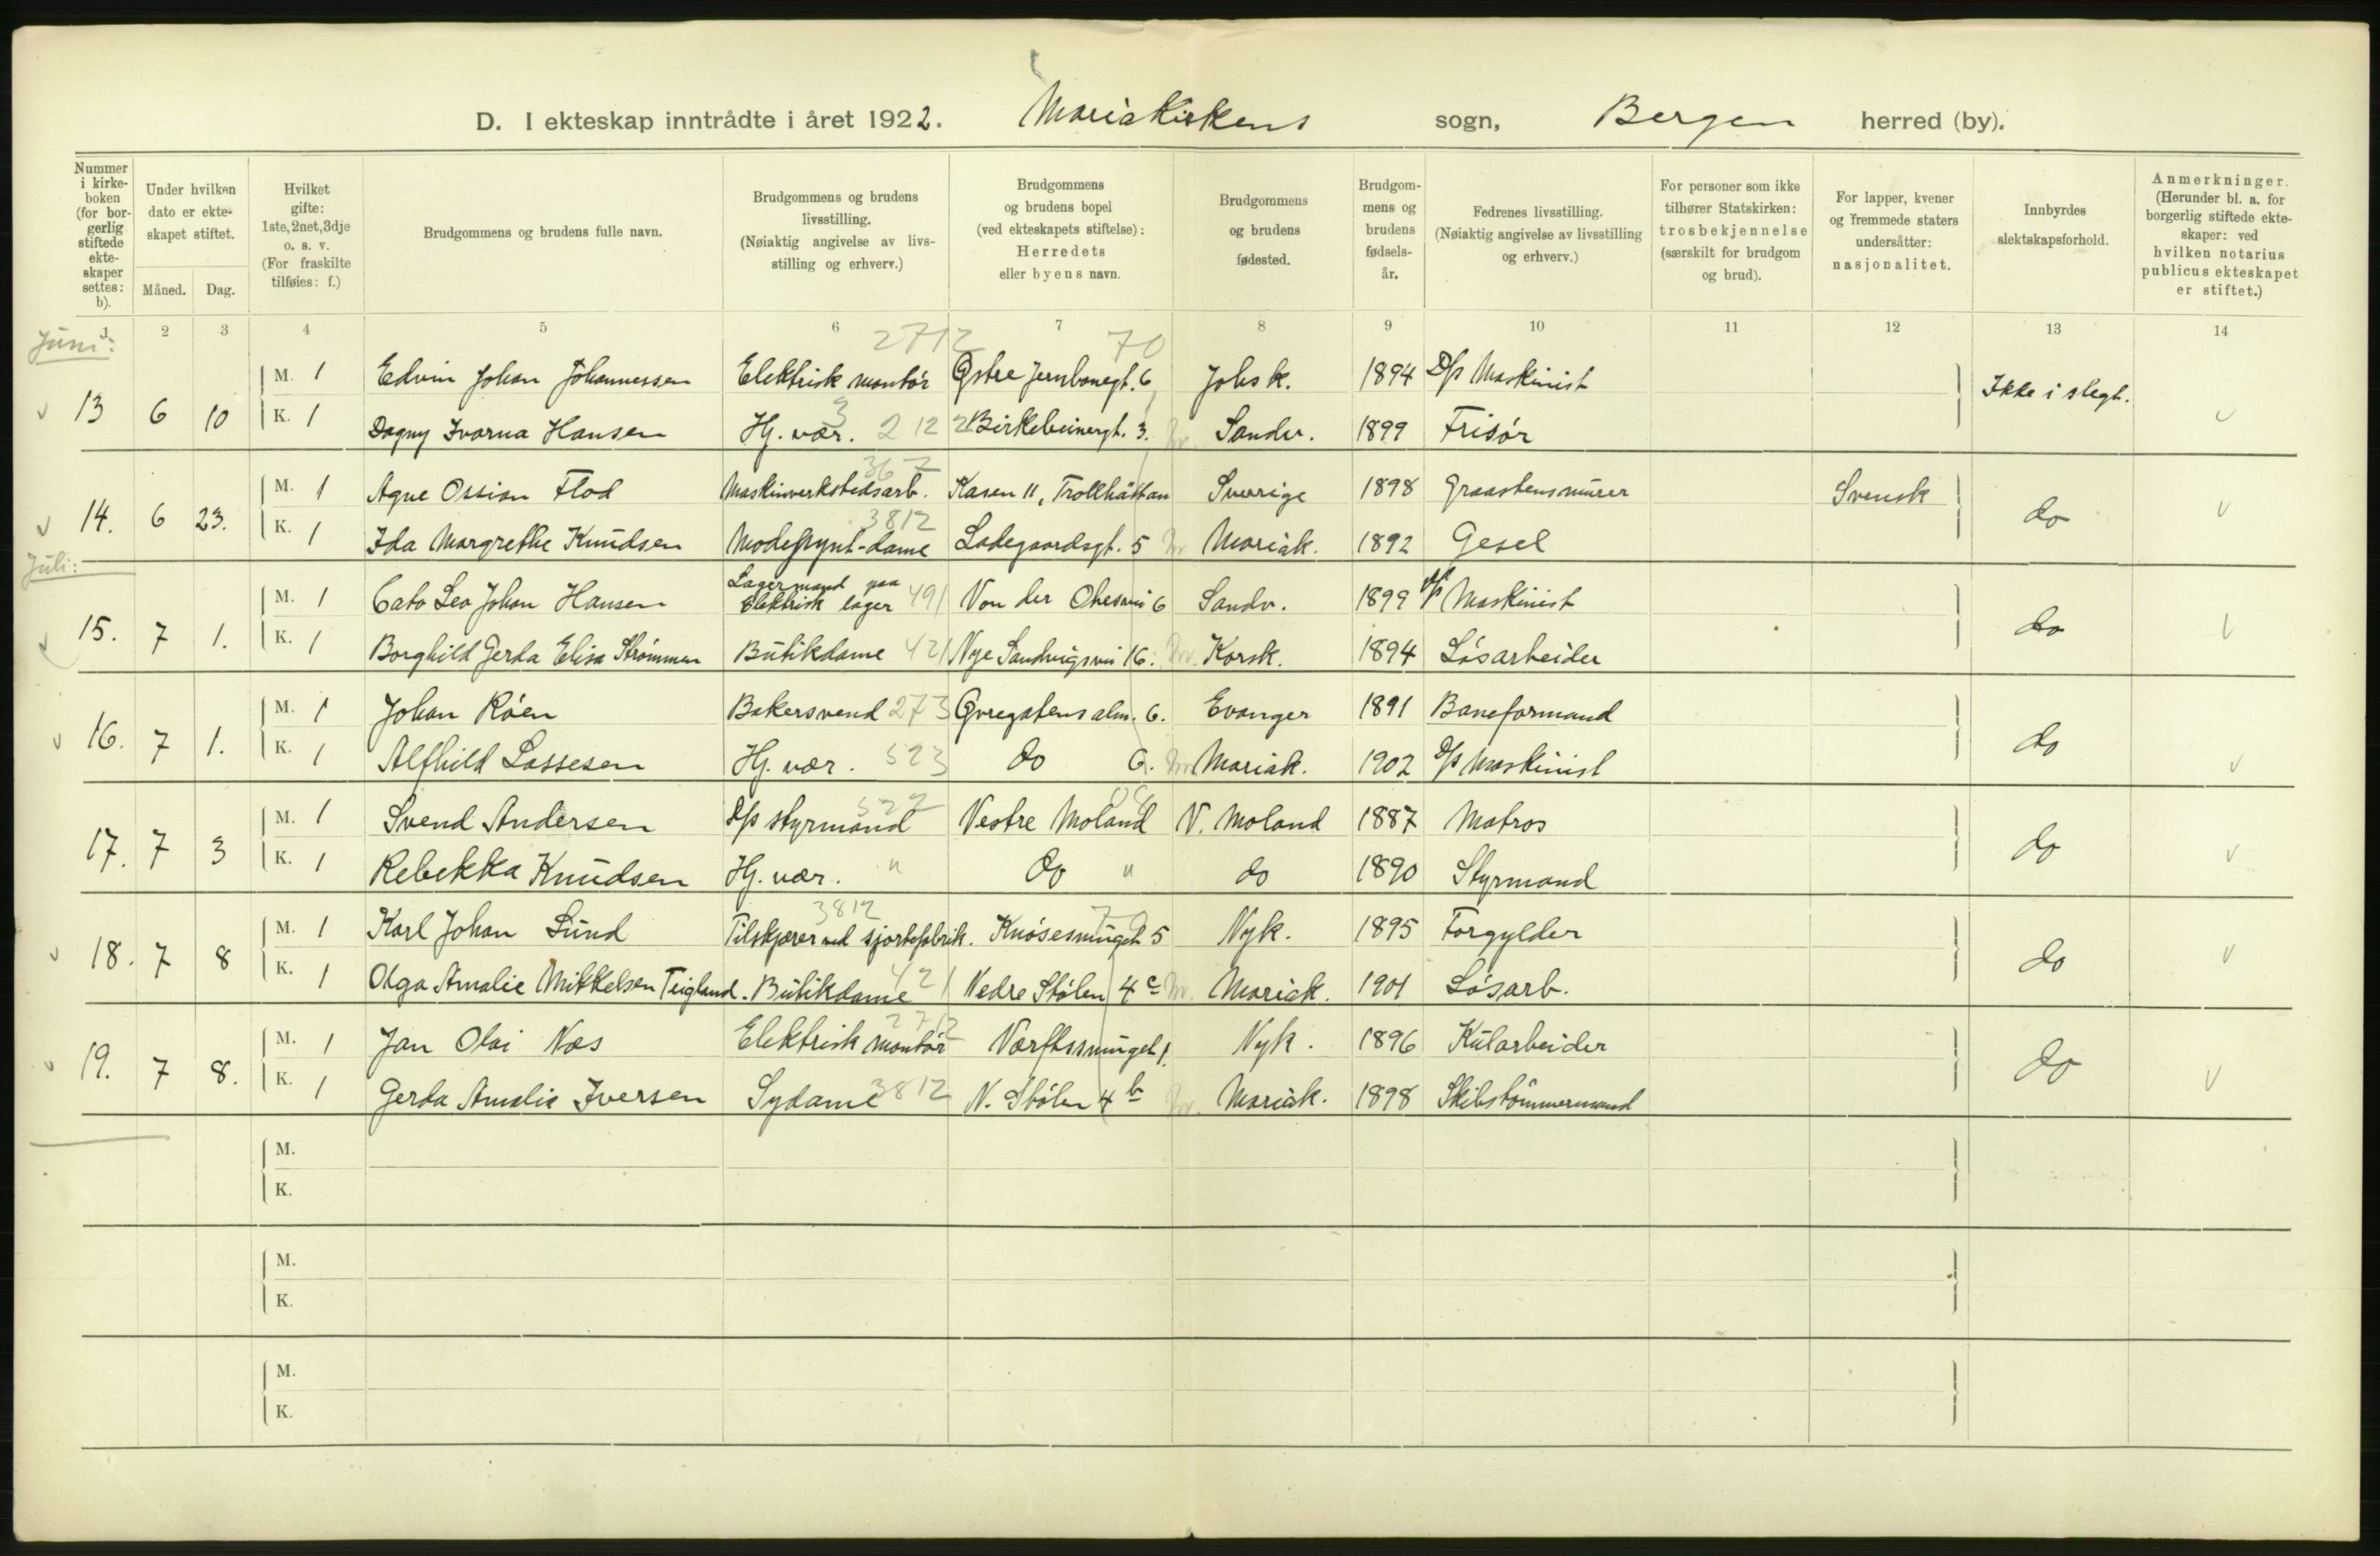 D. I ekteskap inntrådte i året 1922. Mariakirkens sogn, Bergen herred (by).
Nummer i kirke- boken (for bor- gerlig stiftede ekte- skaper settes: b).
Under hvilken dato er ekte- skapet stiftet.
Måned. Dag.
Hvilket gifte: 1ste, 2net, 3dje o. s. v. (For fraskilte tilføies: f.)
Brudgommens og brudens fulle navn.
Brudgommens og brudens livsstilling. (Nøiaktig angivelse av livs- stilling og erhverv.)
Brudgommens og brudens bopel (ved ekteskapets stiftelse): Herredets eller byens navn.
Brudgommens og brudens fødested.
Brudgom- mens og brudens fødsels- år.
Fedrenes livsstilling. (Nøiaktig angivelse av livsstilling og erhverv.)
For personer som ikke tilhører Statskirken: trosbekjennelse (særskilt for brudgom og brud).
For lapper, kvener og fremmede staters undersåtter: nasjonalitet.
Innbyrdes slektskapsforhold.
Anmerkninger. (Herunder bl. a. for borgerlig stiftede ekte- skaper: ved hvilken notarius publicus ekteskapet er stiftet.)
1 2 3 4 5 6 7 8 9 10 11 12 13 14
Juni:
2712 70
M. 1 Edvin Johan Johannessen Elektrisk montør Østre Jernbanegt. 6 Johs k. 1894 D/s Maskinist
13 6 10 Ikke i slegt.
K. 1 Dagny Ivarna Hansen Hj. vær. 3 2 12 2 Birkebeinergt. 3. Sandv. 1899 Frisør
367
M. 1 Agne Ossian Flod Maskinverkstedsarb. Kasen 11, Trollhättan Sverige 1898 Graastensmurer Svensk
14. 6 23. do
3812
K. 1 Ida Margrethe Knudsen Modepynt-dame Ladegaardsgt. 5 Mariak. 1892 Gesel
Juli:
M. 1 Cato Leo Johan Hansen Lagermand paa Elektrisk lager 491 Von der Ohesvei 6 Sandv. 1899 D/s Maskinist
15. 7 1. do
K. 1 Borghild Gerda Elisa Strømmen Butikdame 421 Nye Sandvigsvei 16. Korsk. 1894 Løsarbeider
M. 1 Johan Røen Bakersvend 273 Øvregatens alm. 6. Evanger 1891 Baneformand
16. 7 1. do
K. 1 Alfhild Lassesen Hj. vær. 523 do 6. Mariak. 1902 D/s Maskinist
522
M. 1 Svend Andersen D/s styrmand Vestre Moland V. Moland 1887 Matros
17. 7 3 do
K. 1 Rebekka Knudsen Hj. vær. " do " do 1890 Styrmand
3812 70
M. 1 Karl Johan Lund Tilskjærer ved sjortefabrik. Knøsesmuget 5 Nyk. 1895 Forgylder
18. 7 8 do
K. 1 Olga Amalie Mikkelsen Teigland. Butikdame 421 Nedre Stølen 4 c Mariak. 1901 Løsarb.
2712
M. 1 Jan Olai Næs Elektrisk montør Værftssmuget 1. Nyk. 1896 Kularbeider
19. 7 8. do
K. 1 Gerda Amalie Iversen Sydame 3812 N. Stølen 4 b Mariak. 1898 Skibstømmermand
M.
K.
M.
K.
M.
K.